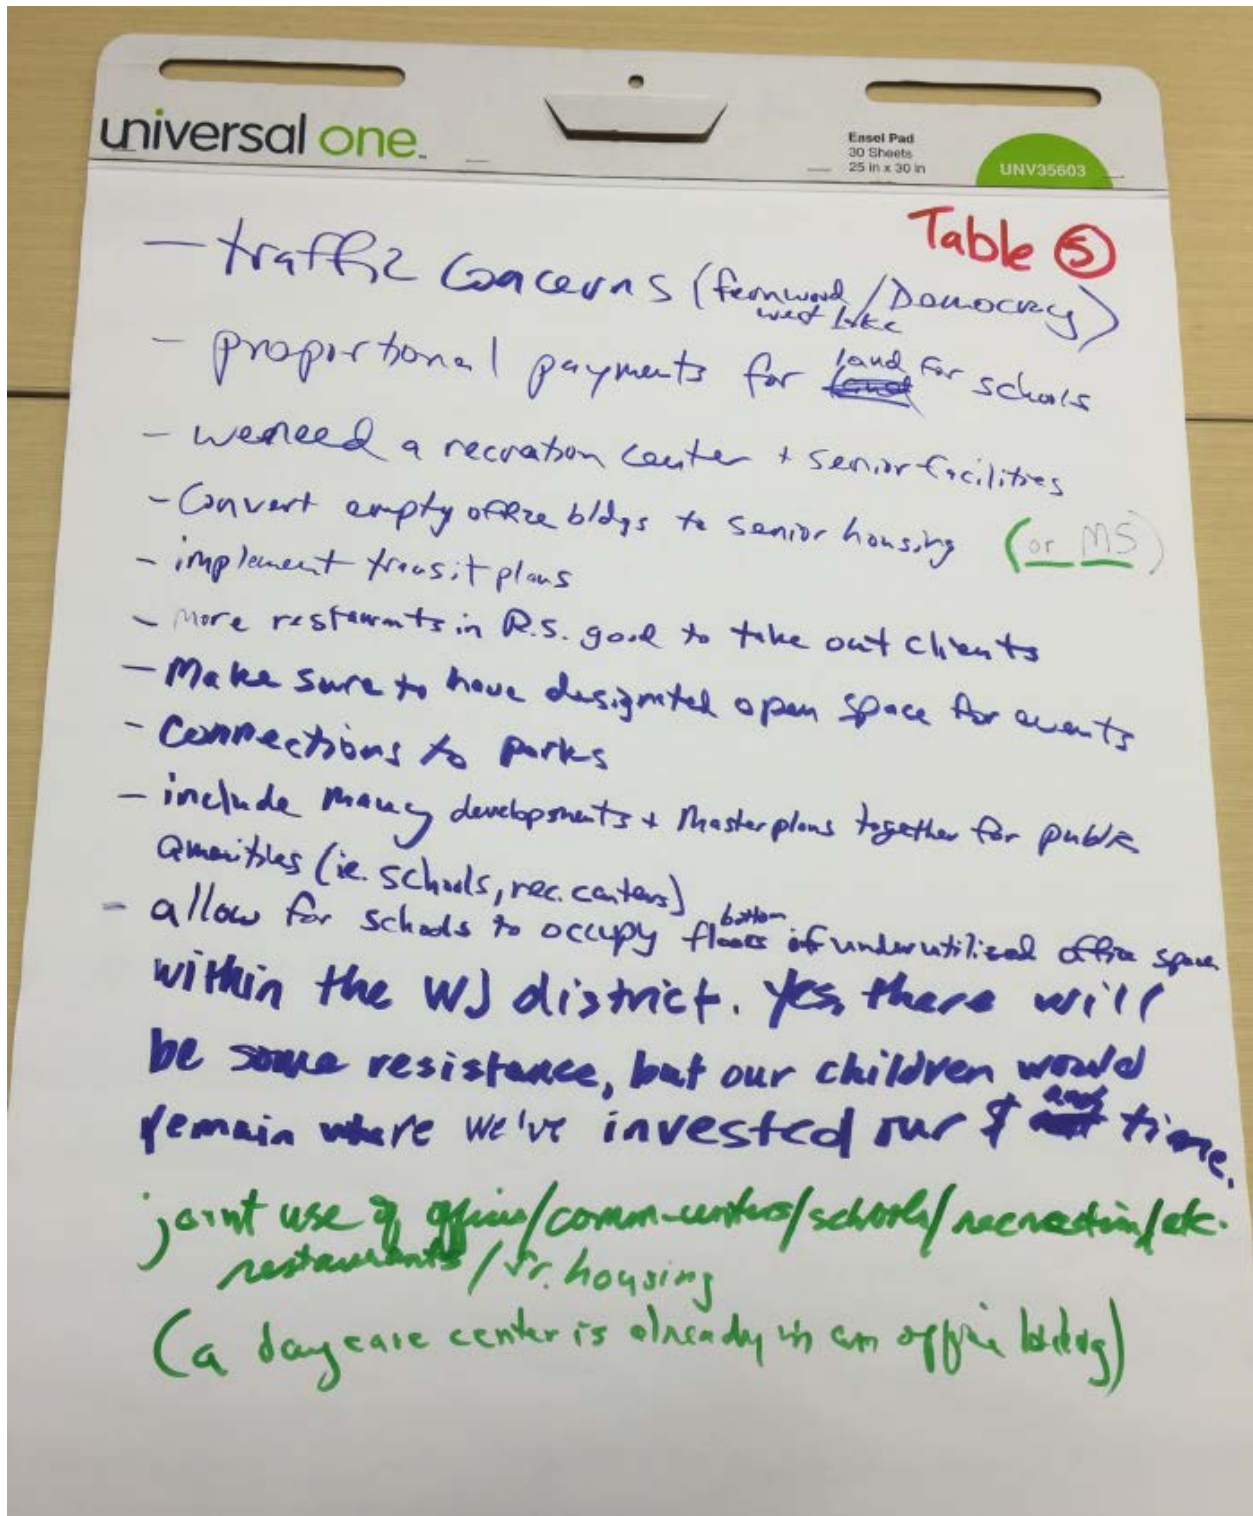 universal one
Easel Pad
30 Sheets
25 in x 30 in
UNV35603
Table 5
— traffic concerns (fernwood/Democracy)
west lake
- proportional payments for land for schools
- we need a recration center + senior facilities
- Convert empty office bldgs to senior housing (or MS)
- implement transit plans
- More restaurants in R.S. good to take out clients
- Make sure to have designated open space for events
- Connections to parks
- include many developments + Master plans together for public
amenities (ie. schools, rec. centers)
- allow for schools to occupy bottom floors of underutilized office space
within the WJ district. Yes, there will
be some resistance, but our children would
remain where we've invested our $ and time.
joint use of offices/comm-centers/schools/recreation/etc.
restaurants/Sr. housing
(a daycare center is already in an office bldg)